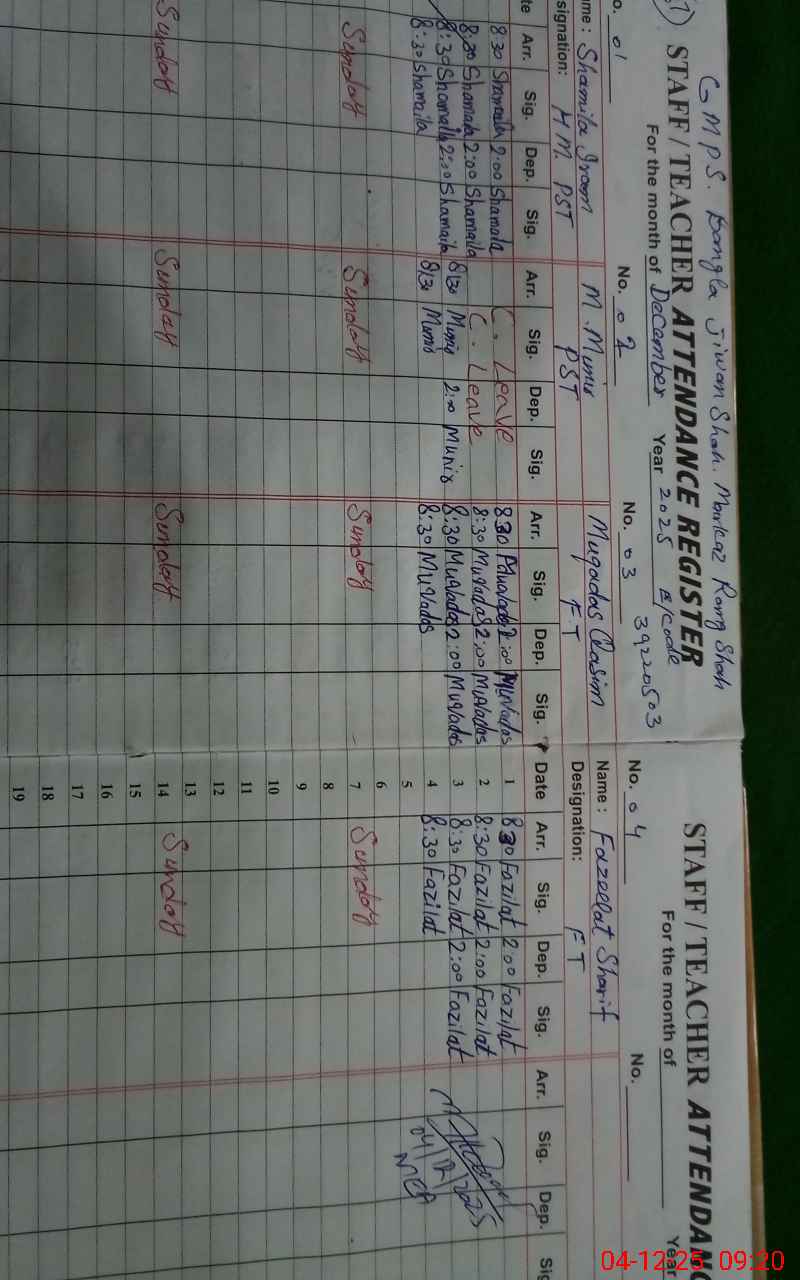 G M P S. Bangla Jiwan Shah. Markaz Rang Shah
STAFF / TEACHER ATTENDANCE REGISTER
For the month of December Year 2025 E/Code 39220503
No. 01 No. 02 No. 03
Shamila Iram M. Munir Muqadas Qasim
signation: HM. PST PST FT
Arr. Sig. Dep. Sig. Arr. Sig. Dep. Sig. Arr. Sig. Dep. Sig.
8 30 Shamaila 2:00 Shamaila C. Leave 8 30 Muqadas 2:00 Muqadas
8:30 Shamaila 2:00 Shamaila C. Leave 8:30 Muqadas 2:00 Muqadas
8:30 Shamaila 2:00 Shamaila 8:30 Munir 2:00 Munir 8:30 Muqadas 2:00 Muqadas
8:30 Shamaila 8:30 Munir 8:30 Muqadas
Sunday Sunday Sunday
Sunday Sunday Sunday
STAFF / TEACHER ATTENDANC
For the month of Year
No. 04 No.
Name: Fazeelat Sharif
Designation: FT
Date Arr. Sig. Dep. Sig. Arr. Sig. Dep. Sig
1 8 30 Fazilat 2:00 Fazilat
2 8:30 Fazilat 2:00 Fazilat
3 8:30 Fazilat 2:00 Fazilat
4 8:30 Fazilat
5
6
7 Sunday
8
9
10
11
12
13
14 Sunday
15
16
17
18
19
04/12/2025
04-12-25 09:20